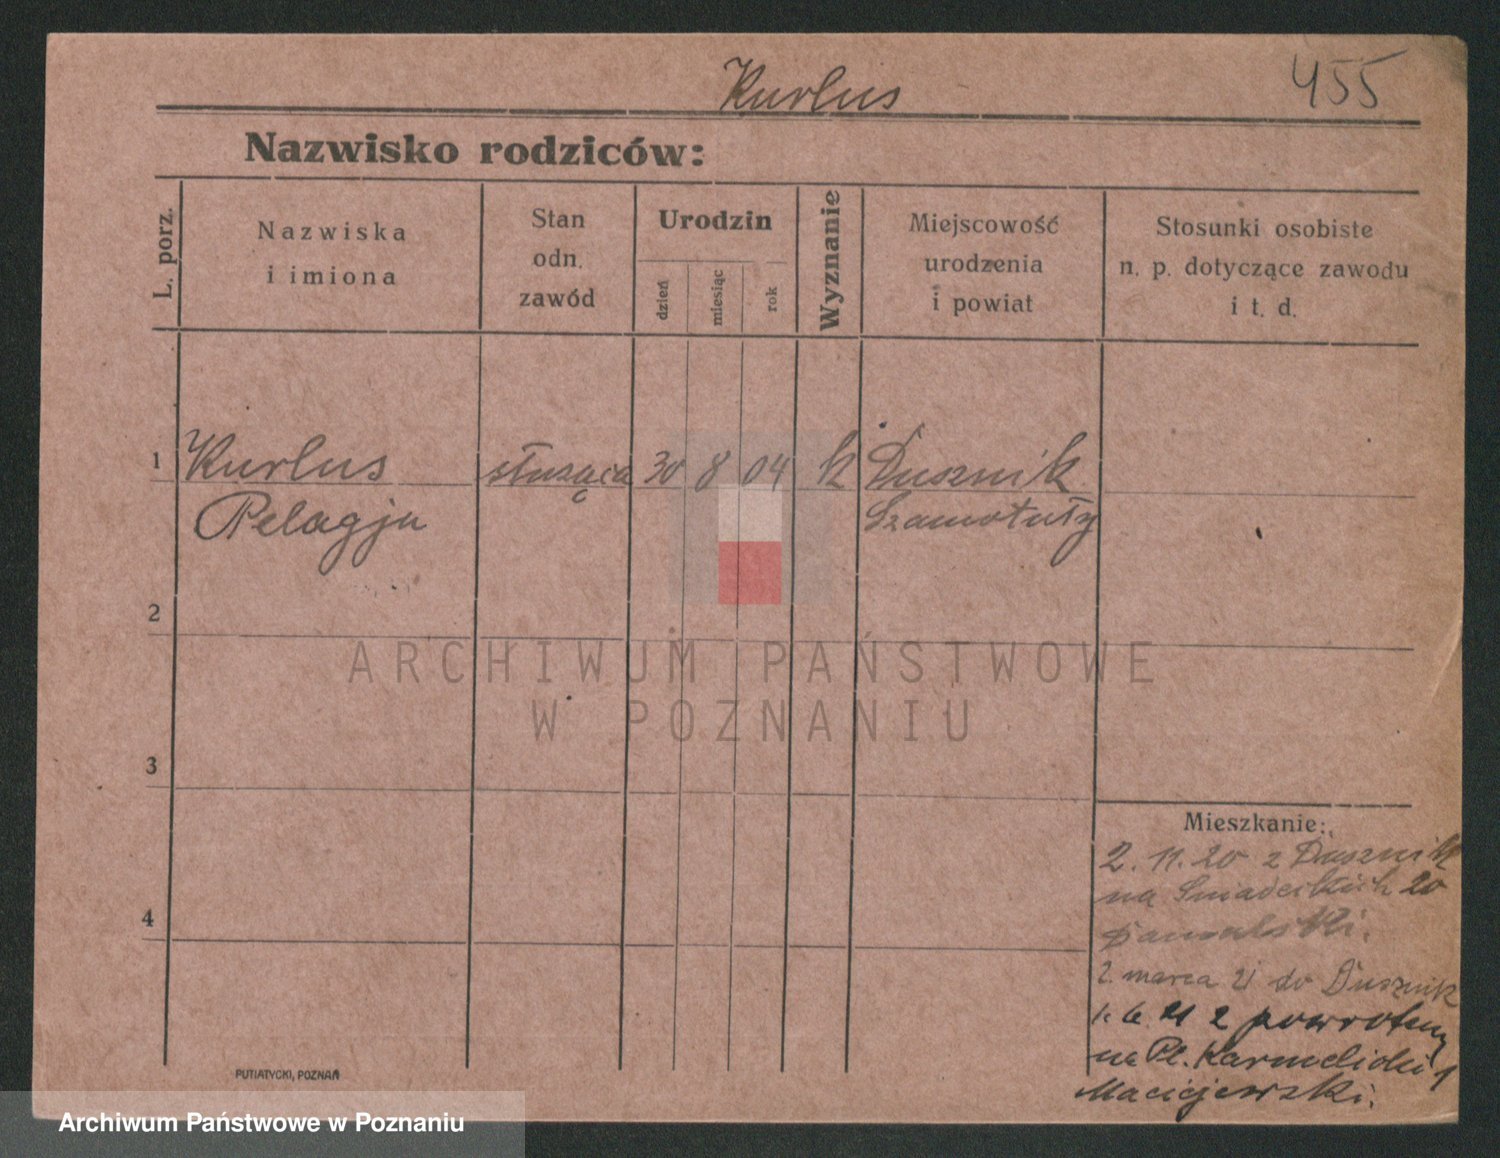 Kurlus
455
Nazwisko rodziców:
L. porz.
Nazwiska
i imiona
Stan
odn.
zawód
Urodzin
dzień
miesiąc
rok
Wyznanie
Miejscowość
urodzenia
i powiat
Stosunki osobiste
n. p. dotyczące zawodu
i t. d.
1
Kurlus
Pelagja
służąca
30
8
04
k
Dusznik
Szamotuły
2
3
4
Mieszkanie:
2. 11. 20 z Dusznik
na Śniadeckich 20
2. marca 21 do Dusznik
1. 6. 21 z powrotem
na Pl. Karmelicki 1
Maciejewski.
PUTIATYCKI, POZNAŃ
ARCHIWUM PAŃSTWOWE
W POZNANIU
Archiwum Państwowe w Poznaniu